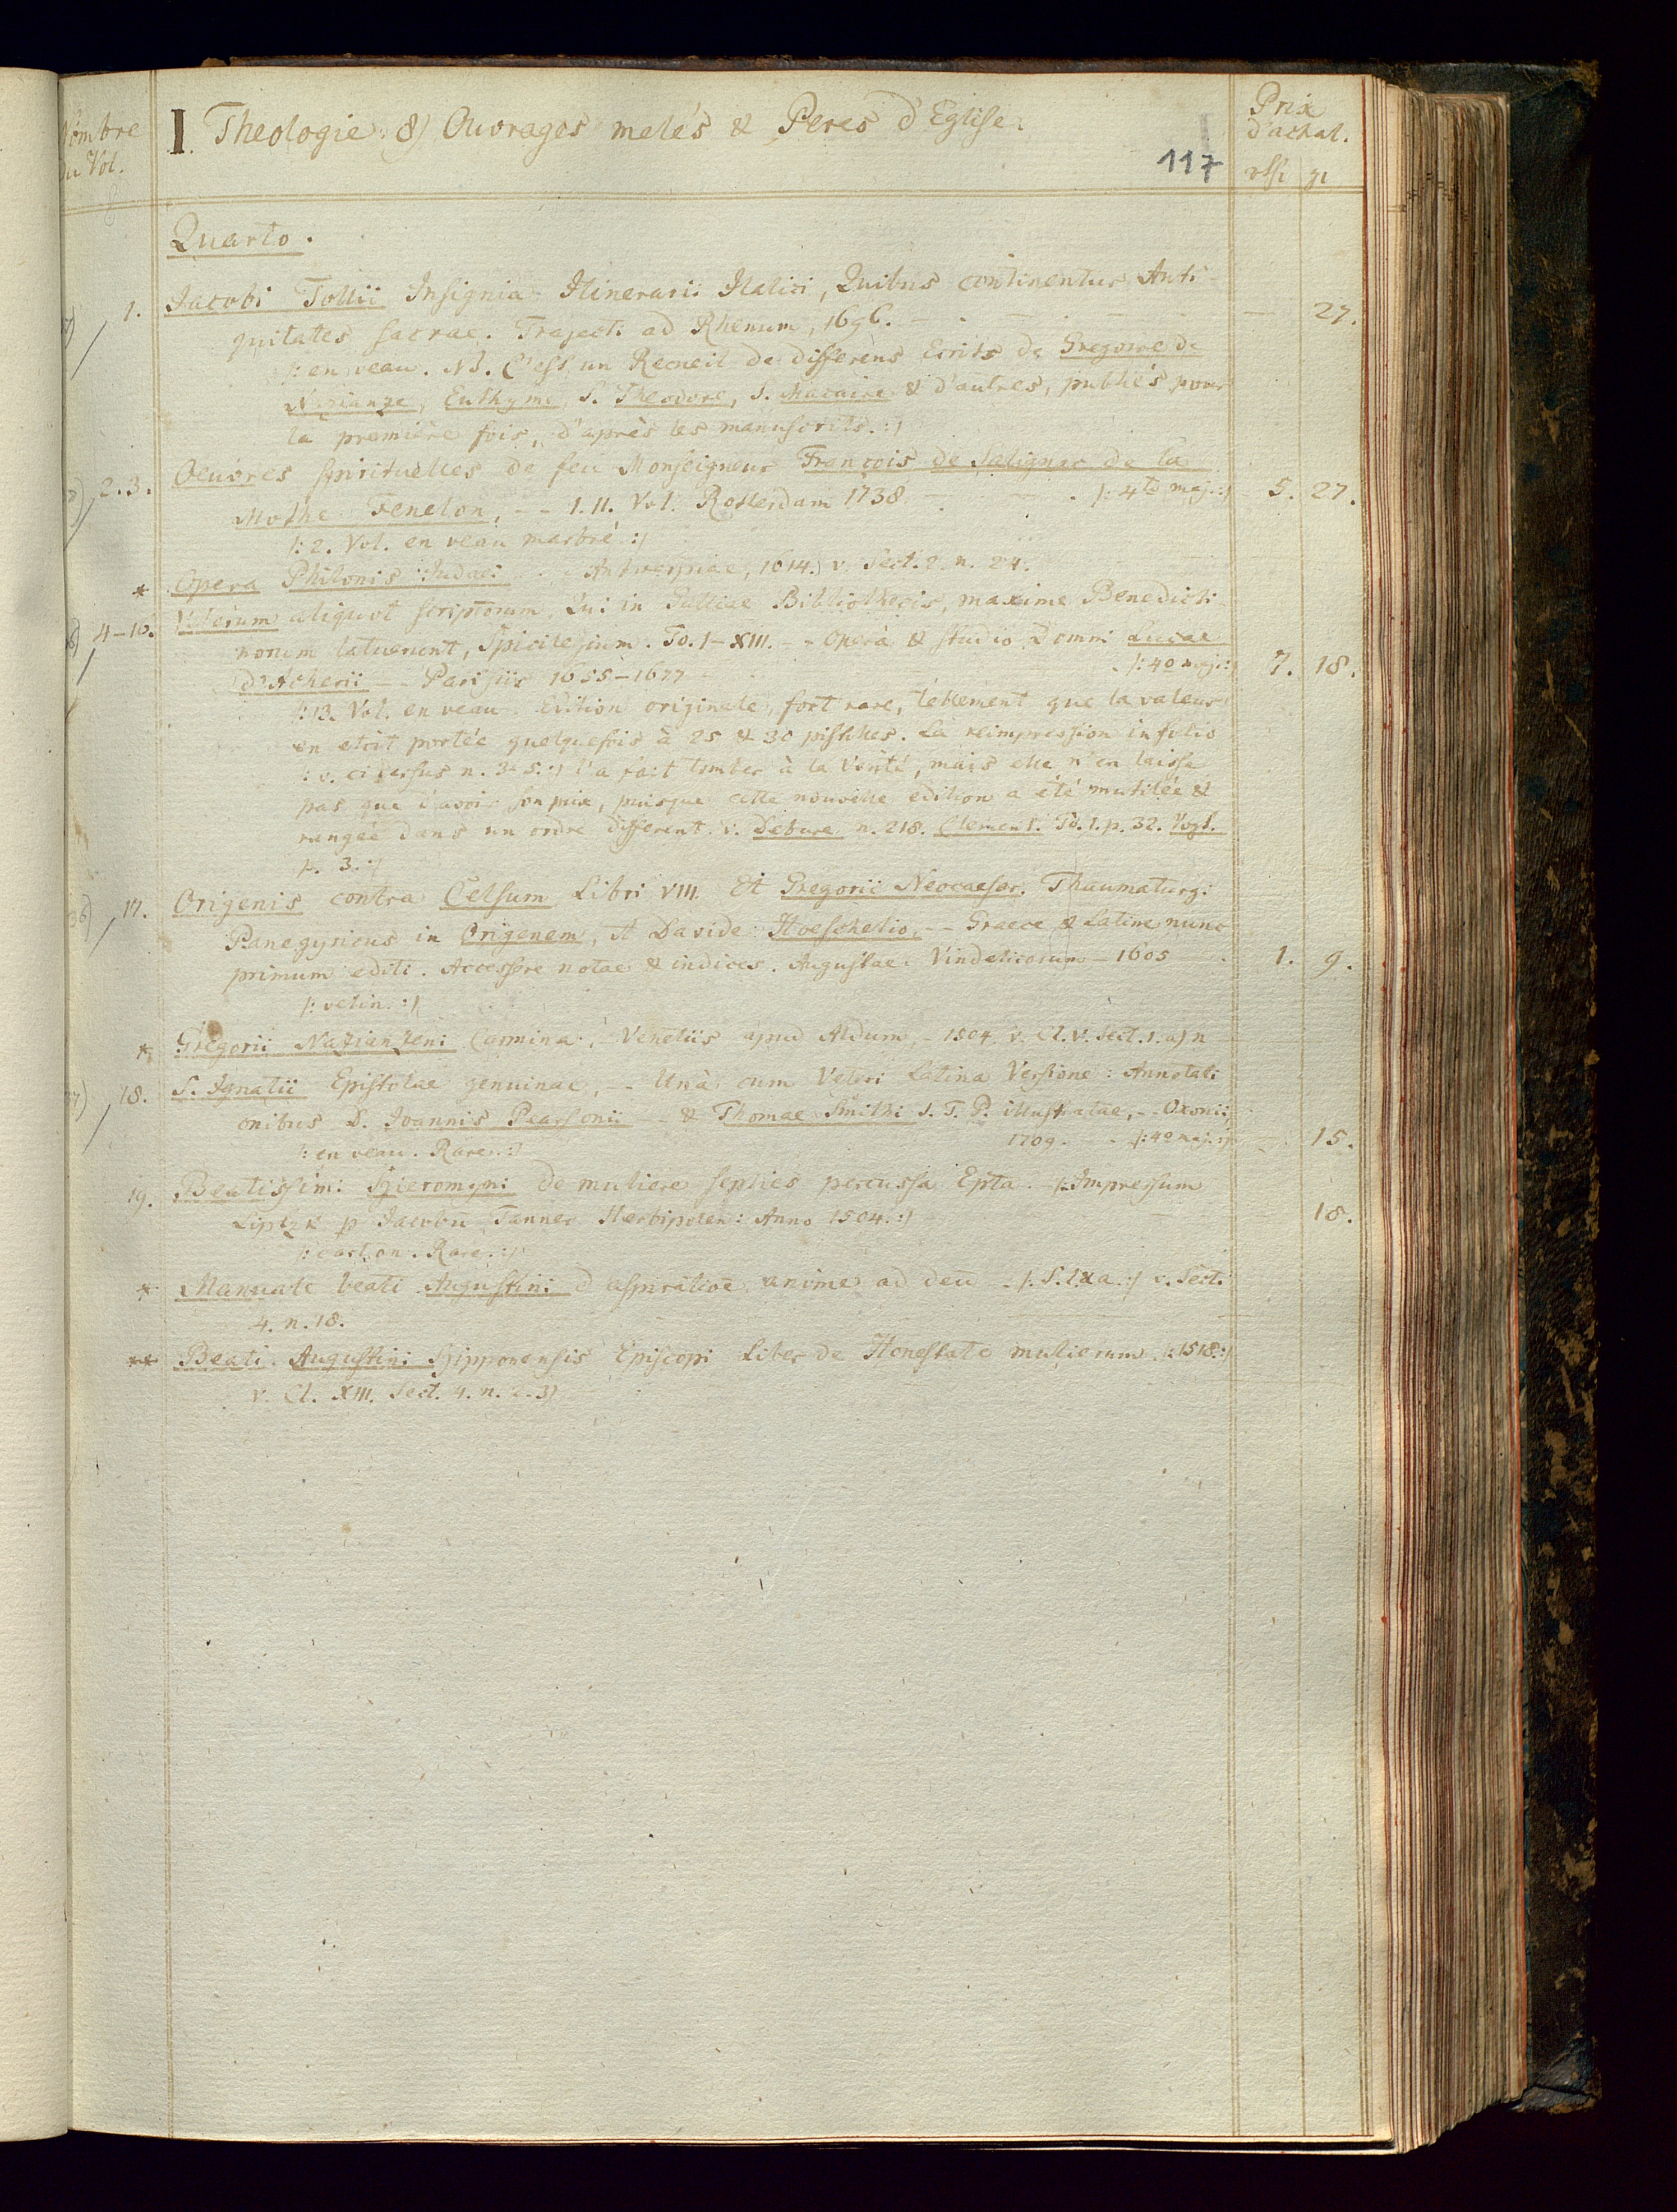 Nombre
du Vol.
I. Theologie. 8) Ouvrages melés & Peres d'Eglise.
117
Prix
d'achat.
rthl gr
Quarto.
1. Jacobi Tollii Insignia Itinerarii Italici, Quibus continentur Anti-
quitates sacrae. Traject. ad Rhenum, 1696. — 27.
|: en veau. NB. C'est un Recueil de differens Ecrits de Gregoire de
Nazianze, Euthyme, S. Theodore, S. Macaire & d'autres, publiés pour
la première fois, d'après les manuscrits. :|
2. 3. Oeuvres spirituelles de feu Monseigneur François de Salignac de la
Mothe Fenelon, -- I. II. Vol. Rotterdam 1738 |: 4to maj. :| 5. 27.
|: 2. Vol. en veau marbré :|
* Opera Philonis Judaei Antverpiae, 1614.) v. Sect. 2. n. 24.
4-16. Veterum aliquot scriptorum, Qui in Galliae Bibliothecis, maxime Benedicti-
norum latuerunt, Spicilegium. To. I-XIII. -- Opera & studio Domni Lucae
d'Acherii -- Parisiis 1655-1677 |: 4o maj. :| 7. 18.
|: 13. Vol. en veau. Edition originale, fort rare, tellement que la valeur
en etoit portée quelquefois à 25 & 30 pistoles. La reimpression in folio
|: v. ci dessus n. 3-5. :| l'a fait tomber à la verité, mais elle n'en laisse
pas que d'avoir son prix, puisque cette nouvelle edition a été mutilée &
rangée dans un ordre different. v. Debure n. 218. Clement. To. I. p. 32. Vogt.
p. 3. :|
17. Origenis contra Celsum Libri VIII. Et Gregorii Neocaesar. Thaumaturgi
Panegyricus in Origenem, A Davide Hoeschelio, -- Graece & Latine nunc
primum editi. Accessere notae & indices. Augustae Vindelicorum - 1605 1. 9.
|: velin. :|
* Gregorii Nazianzeni Carmina, Venetiis apud Aldum - 1504. v. Cl. V. Sect. 1. a) n
18. S. Ignatii Epistolae genuinae, -- Unà cum Veteri Latina Versione: Annotati-
onibus D. Joannis Pearsonii -- & Thomae Smithi S. T. P. illustratae, -- Oxonii,
1709. |: 4o maj. :| 15.
|: en veau. Rare. :|
19. Beatissimi Hieronymi de muliere septies percussa Epta. |: Impressum
Liptzk p Jacobū Tanner Herbipolen: Anno 1504. :| 18.
|: carton. Rare. :|
* Manuale beati Augustini d aspiratiōe anime ad deū - |: S. l & a. :| v. Sect.
4. n. 18.
** Beati Augustini Hipponensis Episcopi Liber de Honestate mulierum. |: 1518. :|
v. Cl. XIII. Sect. 4. n. 2. 3)